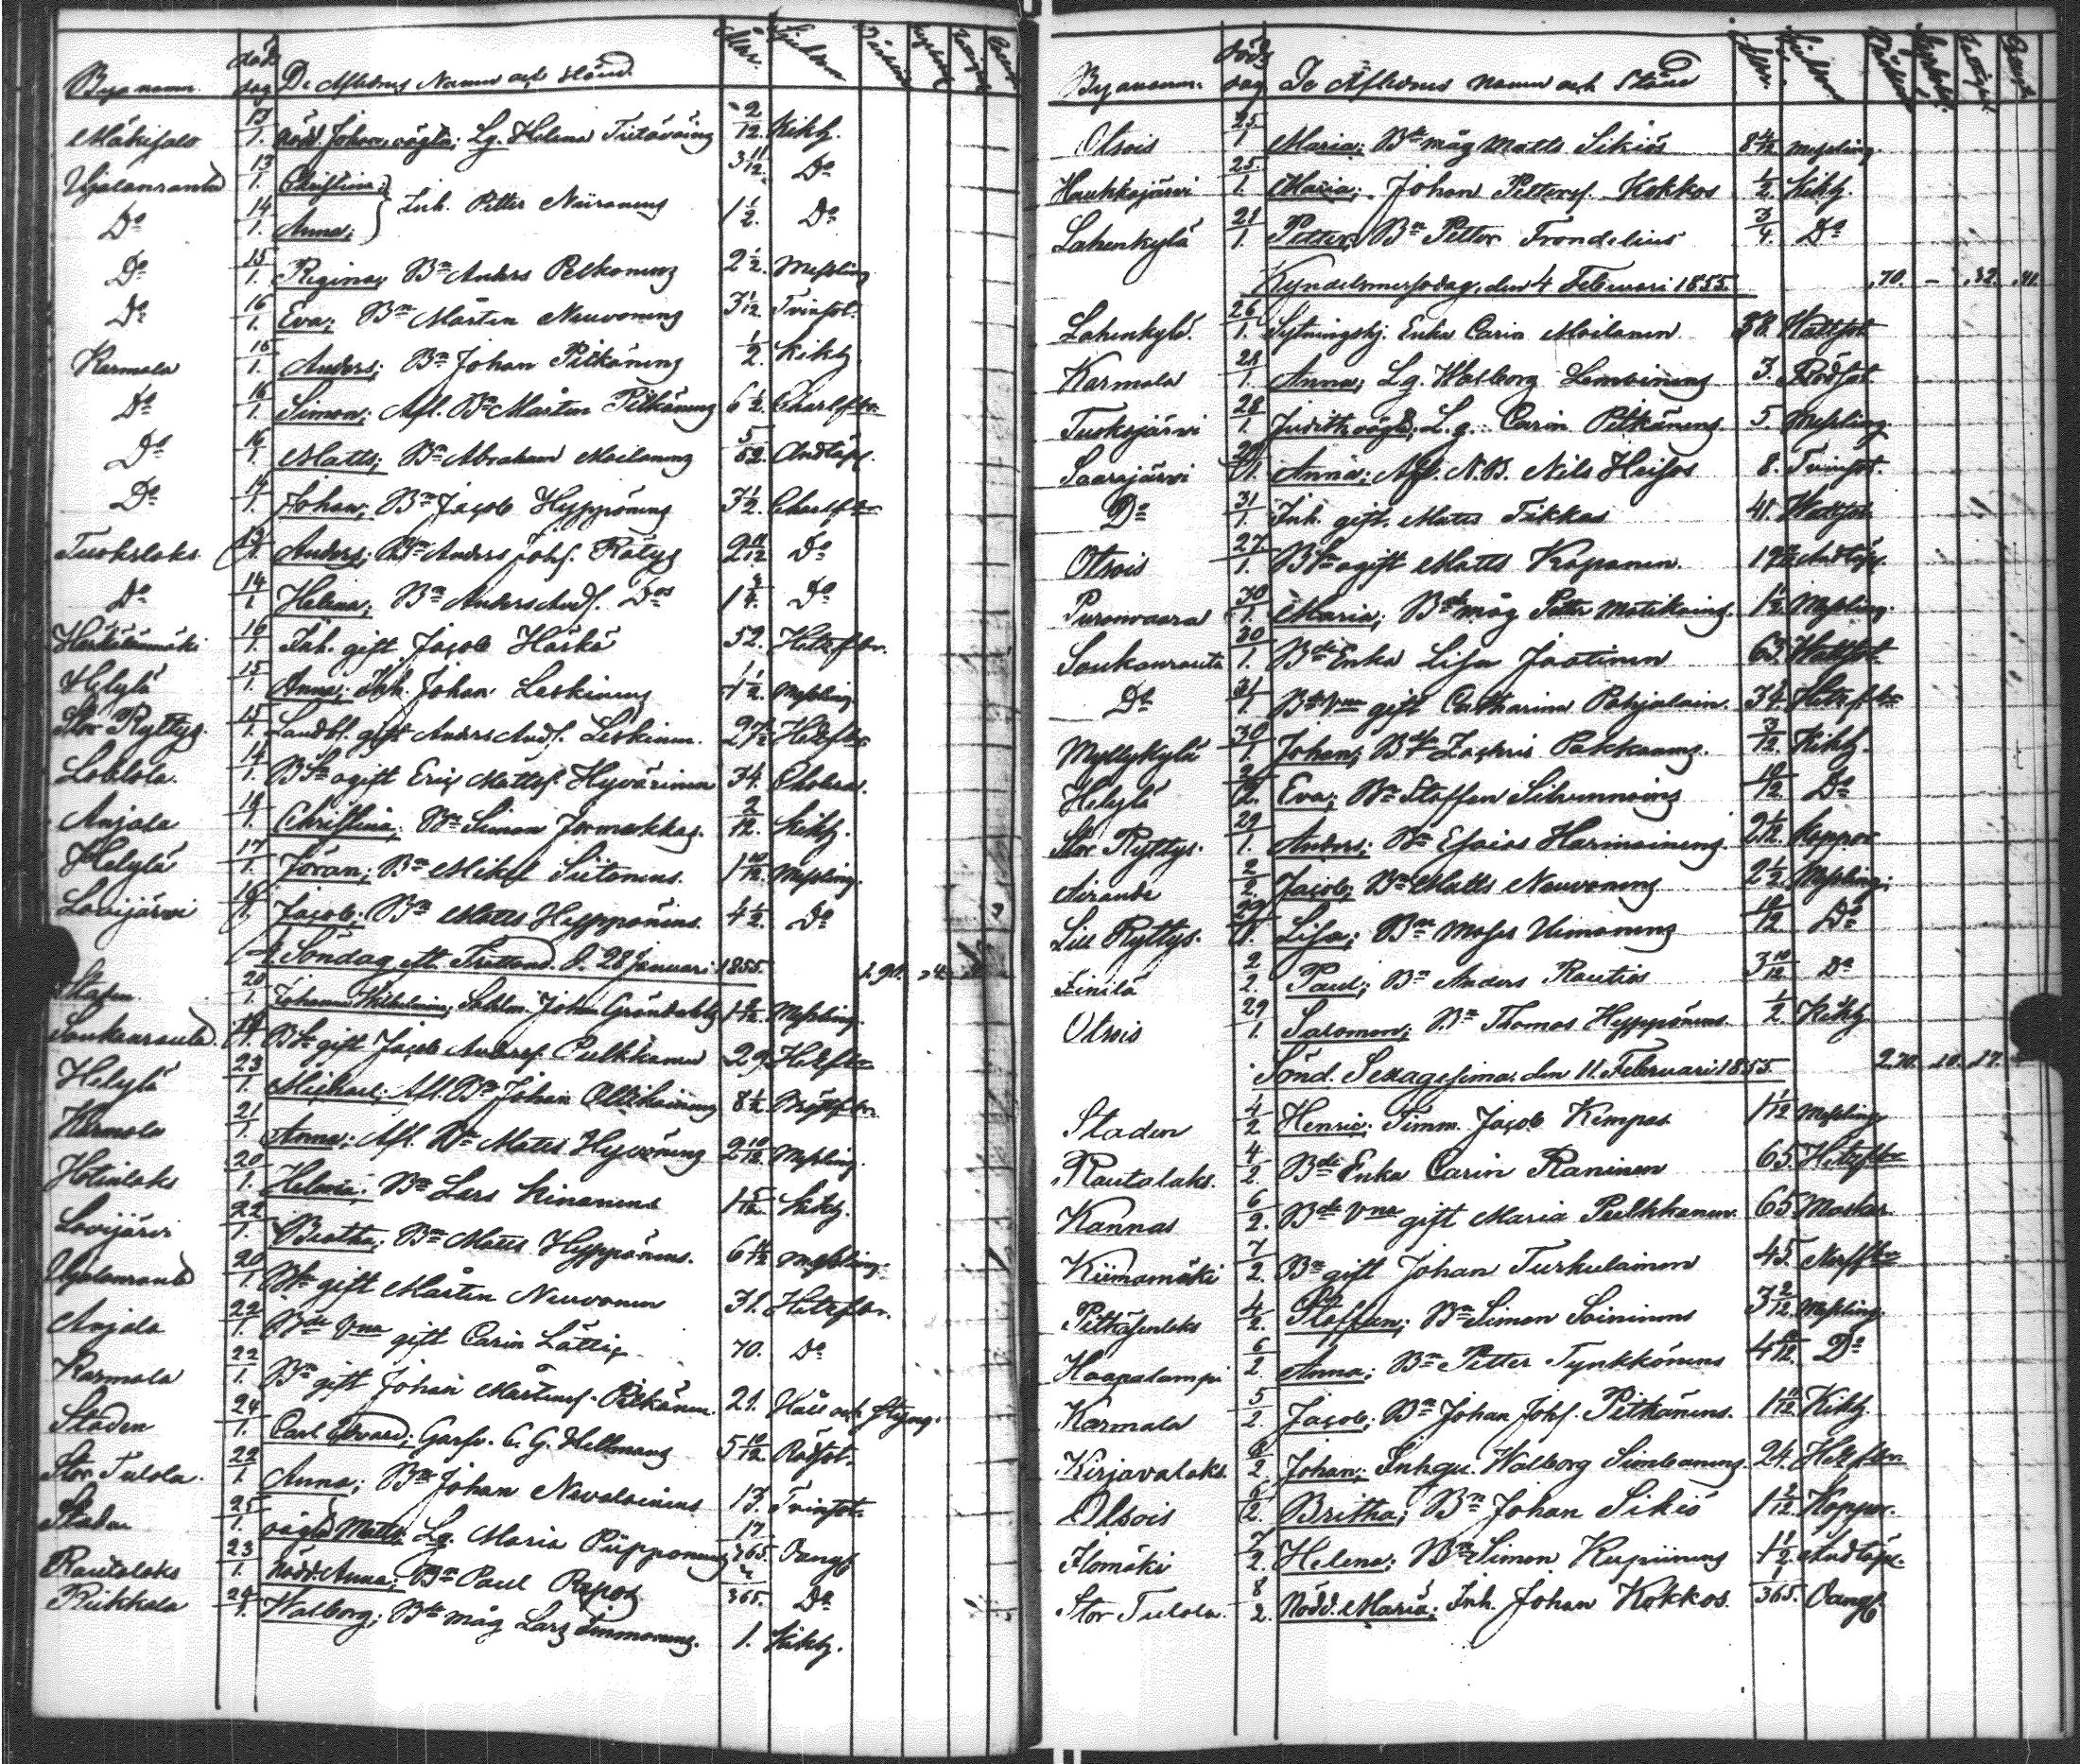 Byanamn. död dag De Aflednes Namn och stånd. Ålder. Sjukdom
Mäkisalo 13/1. Nödd. Johan, oägta; Lg. Helena Tiitäväinz 2/12. Kikh.
Ujalanranta 13/1. Christina; 3 11/12. Do
Inh. Petter Niiranens
Do 14/1. Anna; 1 1/2. Do
Do 15/1. Regina; Bn Anders Pelkonens 2 1/2. Messling
Do 16/1. Eva; Bn Mårten Neuvonens 3 1/12. Tvinsot.
Karmala 15/1. Anders; Bn Johan Pitkänens 1/2. Kikh.
Do 16/1. Simon; Afl. Bn Mårten Pitkänens 6 1/2. Charlfbr.
Do 16/1. Matts; Bn Abraham Moilanens 5/52. Andtäps.
Do 14/1. Johan; Bn Jacob Hyppönens 3 1/2. Charlfbr
Tuokslaks 13/1. Anders; Bn Anders Johs. Rätys 2 11/12 Do
Do 14/1. Helena; Bn Anders Ands. Dos 1 3/4. Do
Härkälänmäki 16/1. Inh. gift Jacob Härkä 52. Hetzfbr.
Helylä 15/1. Anna; Inh. Johan Leskinens 1 1/2. Messling
Stor Ryttys. 15/1. Landbd. gift Anders Ands. Leskinen. 27 1/2 Hetzfbr
Leklola. 14/1. Bson ogift Eric Mattss. Hyvärinen 34. Cholera.
Anjala 18/1. Christina; Bn Simon Jormakkas. 2/12. Kikh.
Helylä 17/1. Jöran; Bn Mikel Siitonens. 1 10/12. Messling.
Lovijärvi 18/1. Jacob; Bn Matts Hyppönens. 4 1/2. Do
4 Söndag. ett. Trettond. d. 28 Januari 1855.
Staden 20/1. Johanna Wilhelmina; Johan Gröndahls Messling.
Soukanranta. Bson gift Jacob Anderss. Pulkkanen 29. Hetzfbr
Helylä 23/1. Michael; Afl. Bn Johan Ollikainens 8 1/2. Bröstfbr.
Karmala 21/1. Anna; Afl. Bn Matts Hyvönens 2 10/12. Messling.
Hotinlaks 20/1. Helena; Bn Lars Kinanens 1 5/12. Kikh.
Lovijärvi 22/1. Beatha; Bn Matts Hyppönens. 6 11/12 Messling.
Ujalanranta 20/1. Bson gift Mårten Neuvonen 31. Hetzfbr.
Anjala 22/1. Bde Enka gift Carin Lättis 70. Do
Karmala 22/1. Bn gift Johan Mårtenss. Pitkänen. 21. Håll och styng.
Staden 24/1. Carl Edvard; Garfv. C. G. Hellmans 5 10/12. Rödsot.
Stor Tulola. 22/1. Anna; Bn Johan Navalainens 13. Tvinsot.
Staden 25/1. oägta Matts; Lg. Maria Piipponens 17/365. Oangf.
Rautalaks 23/1. Nödd. Anna; Bn Paul Repos 2/365. Do
Riikkala 24/1. Walborg; Bde måg Lars Simmonens. 1. Kikh.
Byanamn. död dag De Aflednes namn och Stånd Ålder. Sjukdom
Otsois 25/1 Maria; Bde måg Matts Sikiös 8 4/12 Messling.
Haukkajärvi 25/1. Maria; Johan Petterss. Kokkos 1/2. Kikh.
Lahenkylä 21/1. Petter; Bn Petter Trondelius 3/4. Do
Kyndelsmersodag, den 4 Februari 1855. 70. - 32. 41.
Lahenkylä. 26/1. Sytningshj. Enka Carin Moilanen 38. Wattsot
Karmala 28/1. Anna; Lg. Walborg Lembinens 3. Rödsot
Tuoksjärvi 28/1. Judith oägta; L.g. Carin Pitkänens 5. Messling.
Saarsjärvi Anna; Afl. N.B. Nils Heisos 8. Tvinsot.
Do 31/1. Inh. gift. Matts Tikkas 41. Wattsot
Otsois 27/1. Bson ogift Matts Kaponen. Andtäps.
Puronvaara 30/1. Maria; Bde måg Petter Matikains. 1 1/2. Messling.
Soukanranta 30/1. Bde Enka Lisa Jaatinen 63. Wattsot
Do 31/1. gift Catharina Pohjalain. 34. Hetzfbr
Myllykylä 30/1. Johan; Zachris Pakkanens. 3/12. Kikh.
Helylä Eva; Bn Staffan Sihvonnoins 10/12. Do
Stor Ryttys. 29/1. Anders; Bn Esaias Harinoinens. 2 1/12. Koppor
Airanda 2/2. Jacob; Bn Matts Neuvonens 2 1/2. Messling;
Lill Ryttys. Lisa; Bn Moses Uimonens 10/12. Do
Finilä 2/2. Paul; Bn Anders Rautios 3 10/12 Do
Otsois 29/1. Salomon; Bn Thomas Hyppönens. 1/2. Kikh.
Sönd. Sexagesima. den 11. Februari 1855. 2.70. 10. 17.
Staden 4/2 Henric; Timm. Jacob Kempas 1 1/12 Messling.
Rautalaks. 4/2. Bde Enka Carin Raninen 65. Hetzfbr
Kannas 6/2. gift Maria Pulkkanen. 65. Maskar.
Kiimamäki 7/2. Bn gift Johan Turkulainen 45. Nerffbr
Pitkäsenlaks 4/2. Staffan; Bn Simon Soininens 3 2/12 Messling.
Haapalampi 6/2. Anna; Bn Petter Tynkkönens Do
Karmala 5/2. Jacob; Bn Johan Johs. Pitkänens. 1 10/12 Kikh.
Kirjavalaks. Johan; Inhqu. Walborg Simbanens. 24. Hetzfbr
Otsois 6/2. Britha; Bn Johan Sikiö 1 2/12 Koppor.
Ilomäki 7/2. Helena; Bn Simon Kupiinens 1 1/2. Andtäps.
Stor Tulola. 8/2. Nödd. Maria; Inh. Johan Kokkos. 1/365. Oangf.